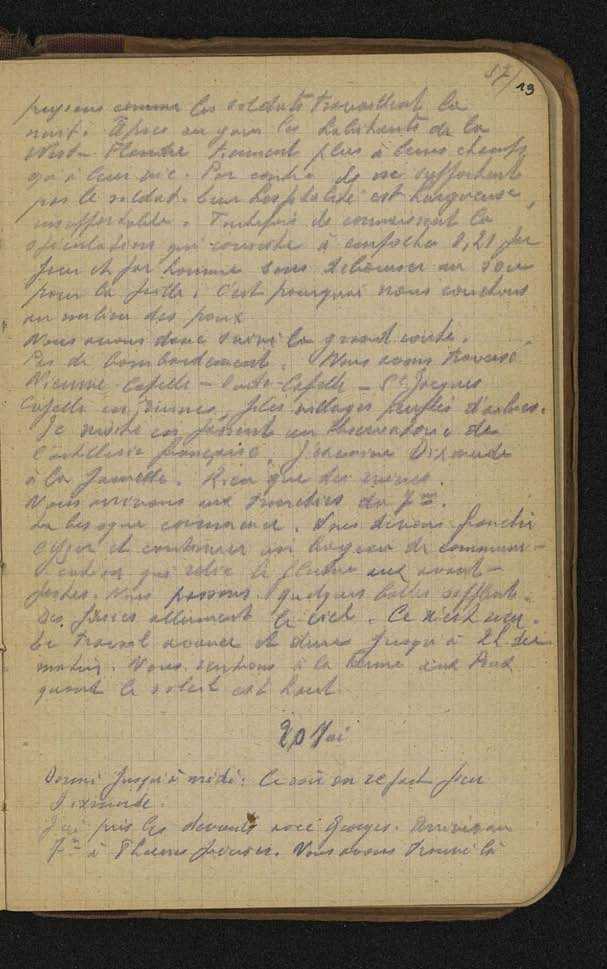 57/19
paysans comme les soldats travaillent la
nuit. Après au gaz les habitants de la
West Flandre tiennent plus à leurs champs
qu'à leur vie. Par contre de ne supportent
pas le soldat. Leur hospitalité est hargneuse,
insupportable. Toutefois de connaissent la
spéculation qui consiste à empocher 0,21 par
jour et par homme sans débourser un sou
pour la paille; c'est pourquoi nous couchons
au milieu des poux.
Nous avons donc suivi la grand'route.
Pas de bombardement. Nous avons traversé
Nieuwe Capelle - Oude Capelle - St Jacques
Capelle en ruines, jolis villages remplis d'arbres.
Je monte en passant un observatoire de
l'artillerie française. J'examine Dixmude
à la jumelle. Rien que des ruines.
Nous arrivons aux tranchées du 7me.
La besogne commence. Nous devons franchir
l'Yser et continuer un boyau de communi-
cation qui relie le fleuve aux avant-
postes. Nous passons. Quelques balles sifflent.
Des fusées allument le ciel. Ce n'est rien.
Le travail avance et dure jusqu'à 2h du
matin. Nous rentrons à la ferme aux Poux
quand le soleil est haut.
20 Mai
Dormi jusqu'à midi. Ce soir on repart pour
Dixmude.
J'ai pris les devants avec Georges. Arrivés au
7me à Thiens . Nous avons trouvé là